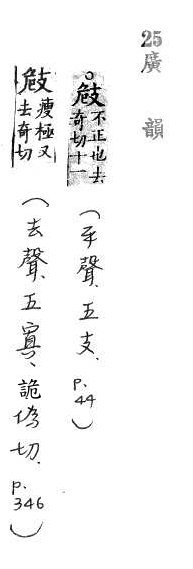 25 廣韻
○㩻不正也去奇切十一（平聲、五支. p.44）
㩻瘦極又去奇切（去聲、五寘、詭偽切. p.346）